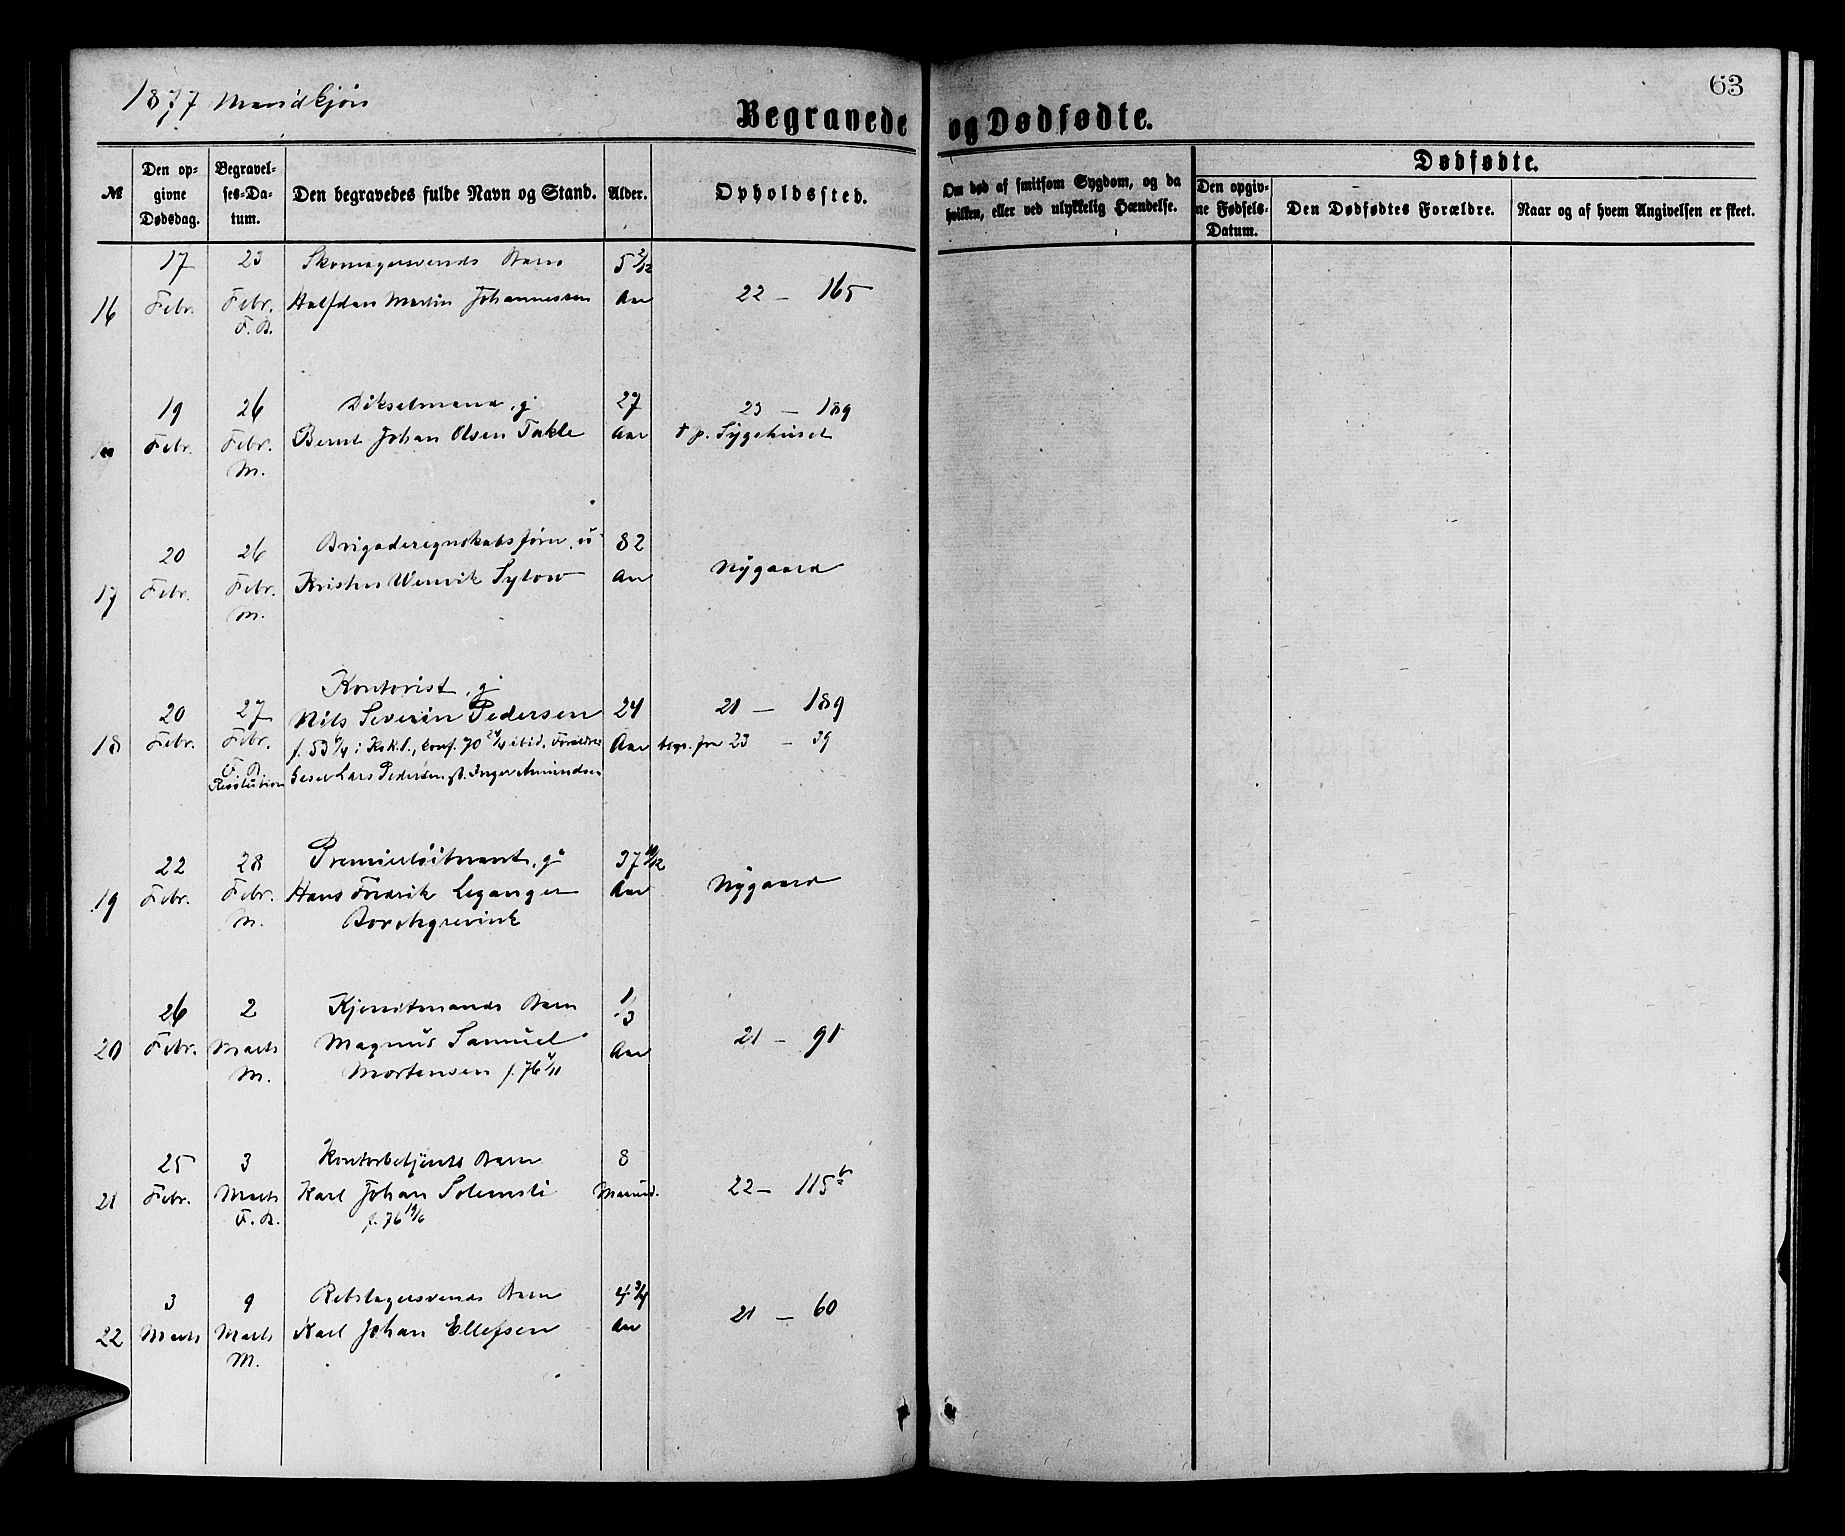 1877 Mandkjøn
63
Begravede og Dødfødte.
№
Den opgivne Dødsdag.
Begravelses-Datum.
Den begravedes fulde Navn og Stand.
Alder.
Opholdssted.
Om død af smitsom Sygdom, og da hvilken, eller ved ulykkelig Hændelse.
Dødfødte.
Den opgivne Fødsels-Datum.
Den Dødfødtes Forældre.
Naar og af hvem Angivelsen er skeet.
17 23 Skomagersvends Barn 5 2/12
16 Febr. Febr. Halfdan Martin Johannessen Aar 22 – 165
F. B.
19 26 g. 27 23 – 189
Febr. Febr. Bernt Johan Olsen Takle Aar † p. Sygehuset
M.
20 26 Brigaderegnskabsfører, u 82
17 Febr. Febr. Kristen Wenvik Sylow Aar Nygaard
M.
Kontorist, g
20 27 Nils Severin Pedersen 24 21 – 189
18 Febr. Febr. f. 53 6/4 i Kskl., konf. 70 24/4 ibid. Forældre Aar begr. fra 23 – 39
F. B.
Resolution Lars Pedersen og Inger Amundsen
22 28 Premierløitnant, g 37 10/12
19 Febr. Febr. Hans Fredrik Leganger Aar Nygaard
M. Borchgrevink
26 2 Barn 1/3
20 Febr. Marts Magnus Samuel Aar 21 – 91
M. Mortensen f. 76 4/11
25 3 Kontorbetjents Barn 8
21 Febr. Marts Karl Johan Solemsli Maaned. 22 – 115 b
F. B. f. 76 19/6
3 9 Rebslagersvends Barn 4 3/4
22 Marts Marts Karl Johan Ellefsen Aar 21 – 60
M.